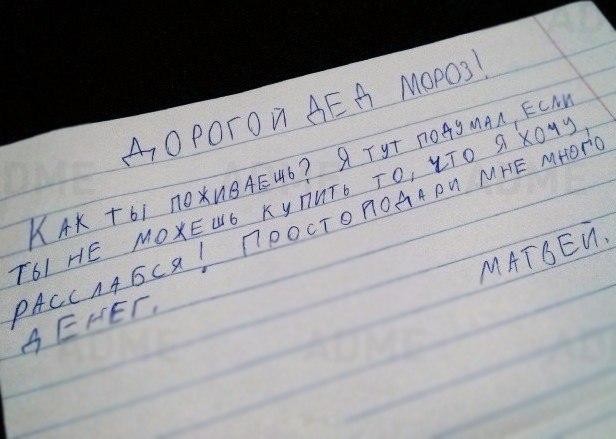 ДОРОГОЙ ДЕД МОРОЗ!
КАК ТЫ ПОЖИВАЕШЬ? Я ТУТ ПОДУМАЛ, ЕСЛИ
ТЫ НЕ МОЖЕШЬ КУПИТЬ ТО, ЧТО Я ХОЧУ,
РАССЛАБСЯ! ПРОСТО ПОДАРИ МНЕ МНОГО
ДЕНЕГ.
МАТВЕЙ.
ADME
ADME
ADME
ADME